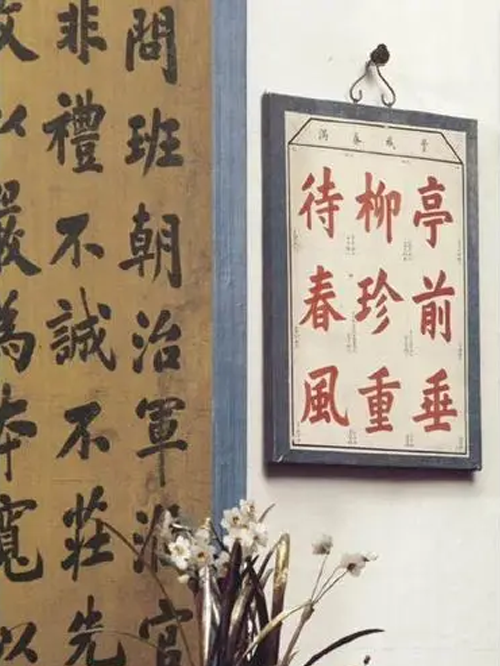 管城春滿
亭前垂
柳珍重
待春風
問班朝治軍涖官
非禮不誠不莊先
以嚴為本寬以